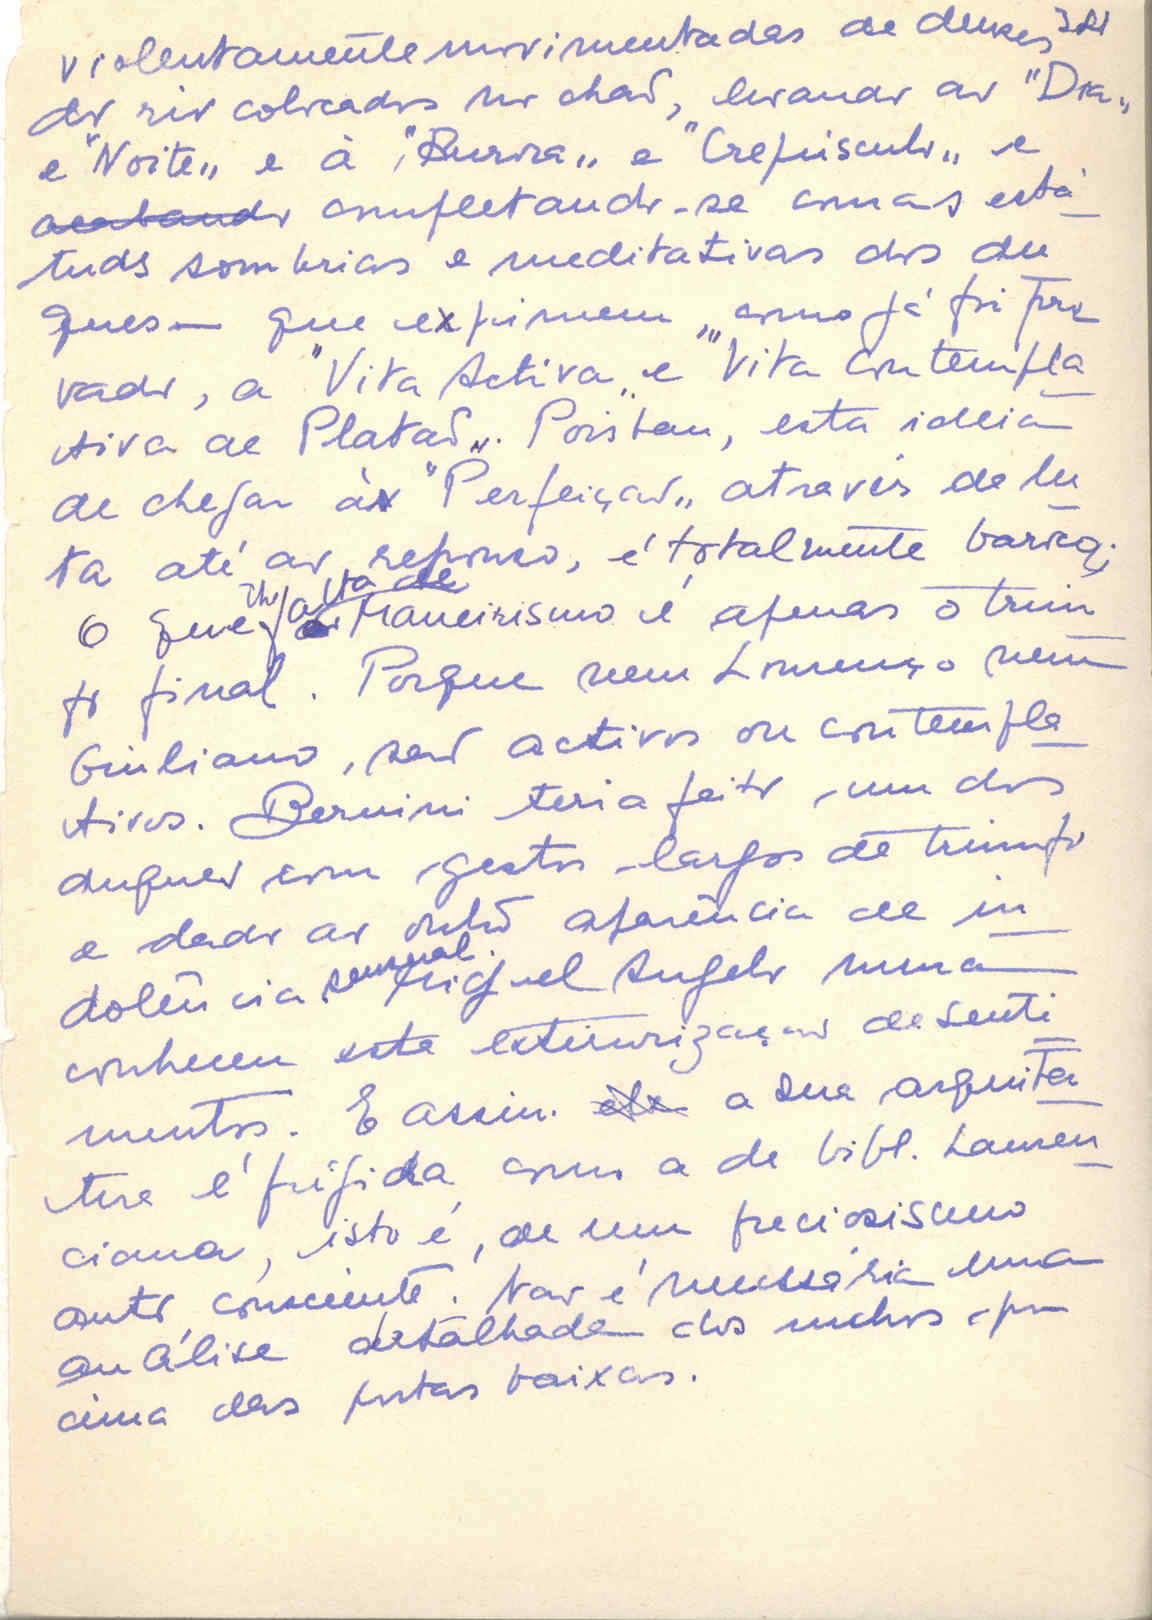 violentamente movimentadas de deuses
do rio colocados no chão, levando ao "Dia"
e "Noite" e à "Aurora" e "Crepúsculo" e
acabando completando-se com as está
tuas sombrias e meditativas dos du
ques — que exprimem, como já foi pro
vado, a "Vita Activa" e "Vita Contempla
tiva de Platão". Pois bem, esta ideia
de chegar à "Perfeição" através de lu
ta até ao repouso, é totalmente barroca;
O que lhe falta de Maneirismo é apenas o triun
fo final. Porque nem Lourenço nem
Giuliano, são activos ou contempla
tivos. Bernini teria feito um dos
duques com gestos largos de triunfo
e dado ao outro aparência de in
dolência sensual. Miguel Angelo nunca
conheceu esta exteriorização de senti
mentos. E assim a sua arquitec
tura é frígida como a de bibl. Lauren
ciana, isto é, de um preciosismo
auto consciente. Não é necessária uma
análise detalhada dos nichos por
cima das portas baixas.